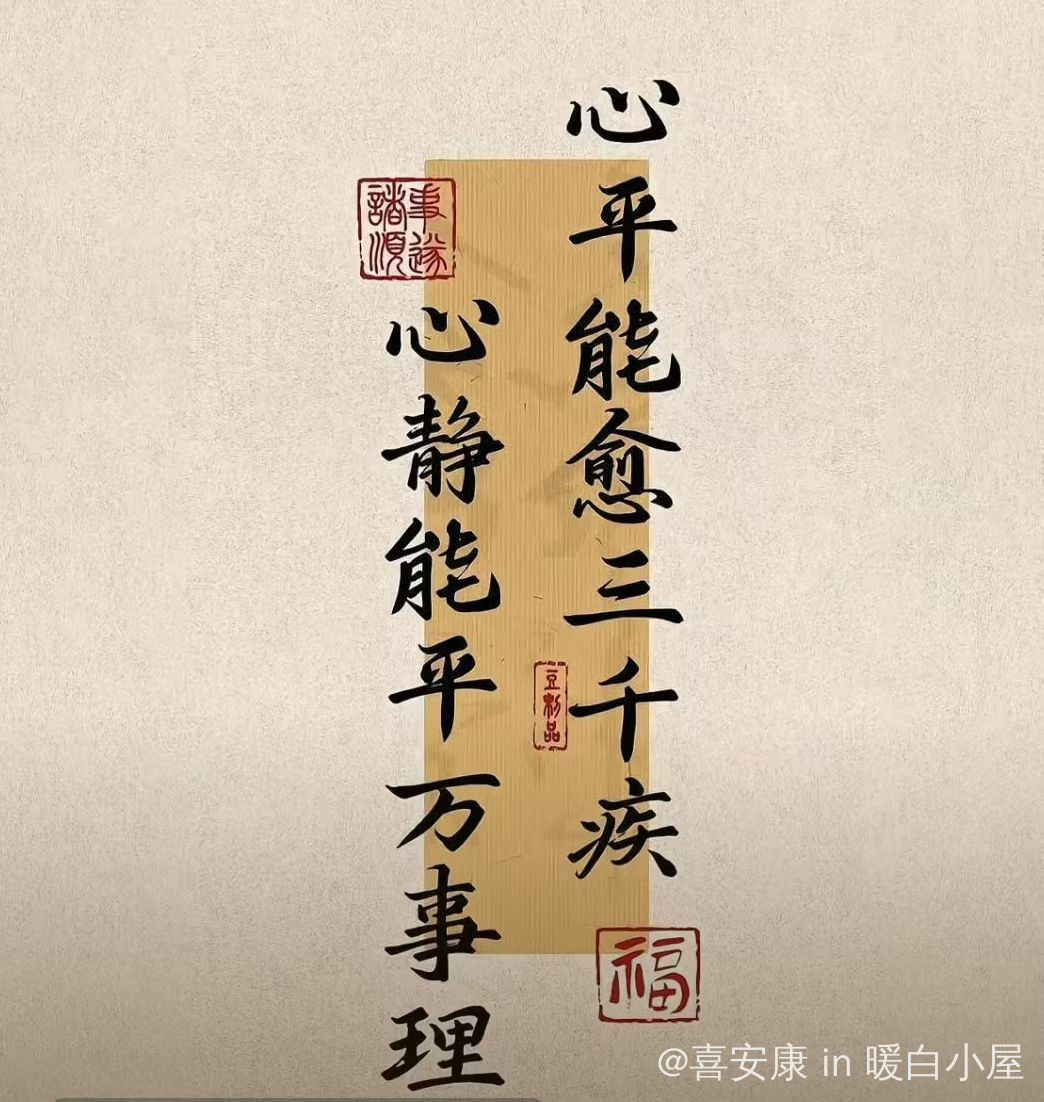 心平能愈三千疾
心静能平万事理
事遂
諸順
豆制品
福
@喜安康 in 暖白小屋